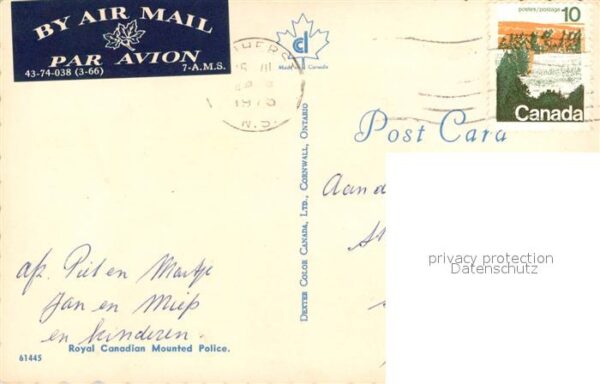 BY AIR MAIL
PAR AVION
43-74-038 (3-66) 7-A.M.S.
Made in Canada
1973
N.S.
postes/postage 10
Canada
Post Card
DEXTER COLOR CANADA, LTD., CORNWALL, ONTARIO
privacy protection
Datenschutz
afz. Piet en Martje
Jan en Miep
en kinderen.
Royal Canadian Mounted Police.
61445